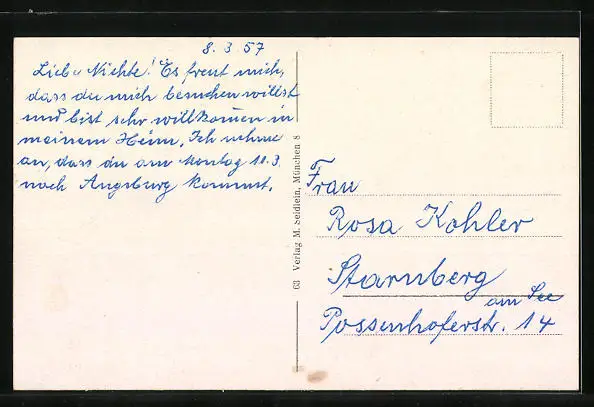 8. 3 57
Liebe Nichte! Es freut mich,
dass du mich besuchen willst
und bist sehr willkomen in
meinem Heim. Ich nehme
an, dass du am Montag 11.3.
nach Augsburg kommst.
63 Verlag M. Seidlein, München 8
Frau
Rosa Kohler
Starnberg
am See
Possenhoferstr. 14